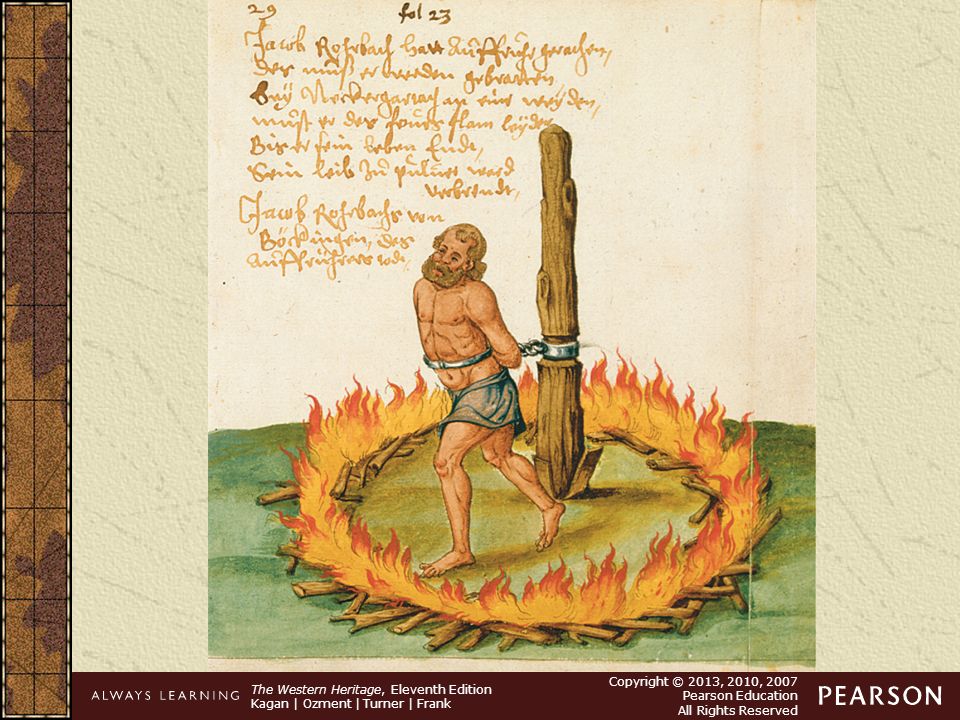 29 fol 23
Jacob Rohrbach hatt Auffruhr gerachen,
des muß er werden gebratten
Bey Neckergartach an eine weyden,
must er des feurs flam leyden
Bis er sein leben Endt,
Sein leib zu puluer ward
verbrendt,
Jacob Rohrbachs von
Böckingen, des
Auffrührers todt,
The Western Heritage, Eleventh Edition
Kagan | Ozment | Turner | Frank
ALWAYS LEARNING
Copyright © 2013, 2010, 2007
Pearson Education
All Rights Reserved
PEARSON